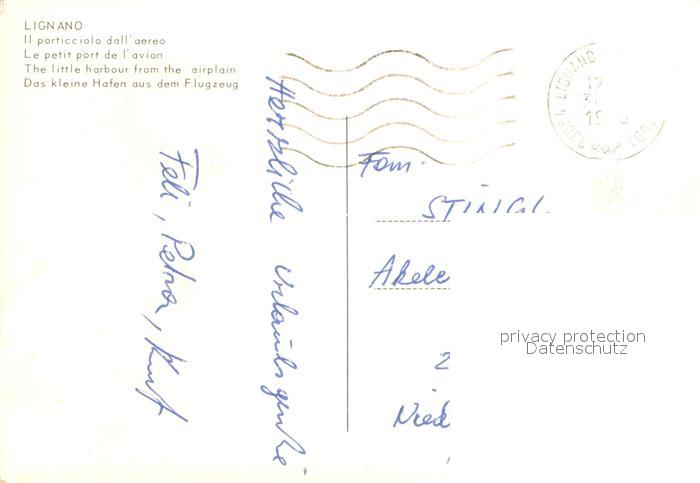 LIGNANO
Il porticciolo dall'aereo
Le petit port de l'avion
The little harbour from the airplain
Das kleine Hafen aus dem Flugzeug
Herzliche Urlaubsgrüße
Feli, Petra, Kurt
33054 LIGNANO
12
19
Fam.
STINGL
Akele
2
Nied
privacy protection
Datenschutz